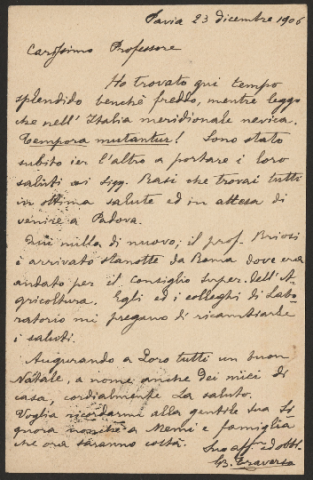 Pavia 23 dicembre 1906
Carissimo Professore
Ho trovato qui tempo
splendido benchè freddo, mentre leggo
che nell'Italia meridionale nevica.
Tempora mutantur! Sono stato
subito ier l'altro a portare i loro
saluti ai sigg. Rasi che trovai tutti
in ottima salute ed in attesa di
venire a Padova.
Qui nulla di nuovo; il prof. Briosi
è arrivato stanotte da Roma dove era
andato per il Consiglio super. dell'A-
gricoltura. Egli ed i colleghi di Labo-
ratorio mi pregano di ricambiarle
i saluti.
Augurando a Loro tutti un buon
Natale, a nome anche dei miei di
casa, cordialmente La saluto.
Voglia ricordarmi alla gentile sua Si-
gnora nonchè a Memi e famiglia
che ora saranno costà.
Suo aff. ed obbl.
GB. Traverso